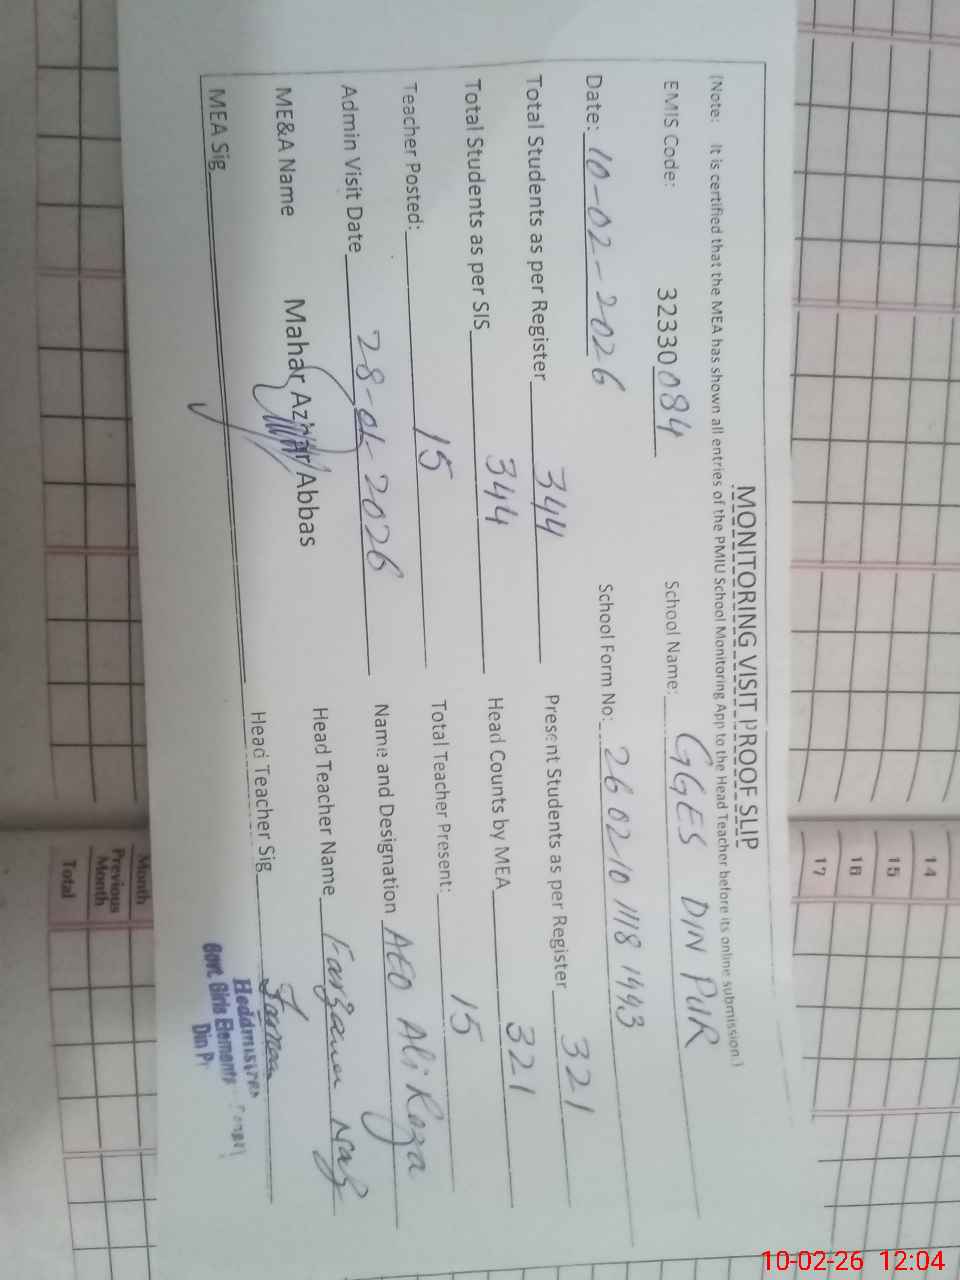 MONITORING VISIT PROOF SLIP
(Note: It is certified that the MEA has shown all entries of the PMIU School Monitoring App to the Head Teacher before its online submission.)
EMIS Code: 32330084 School Name: GGES DIN PUR
Date: 10-02-2026 School Form No: 26 02 10 1118 1993
Total Students as per Register 344 Present Students as per Register 321
Total Students as per SIS 344 Head Counts by MEA 321
Teacher Posted: 15 Total Teacher Present: 15
Admin Visit Date 28-01-2026 Name and Designation AEO Ali Raza
ME&A Name Mahar Azhar Abbas Head Teacher Name Farzana Naz
MEA Sig. Head Teacher Sig.
Headmistress
Govt. Girls Elementary
Din P
14
15
16
17
Month
Previous
Month
Total
10-02-26 12:04